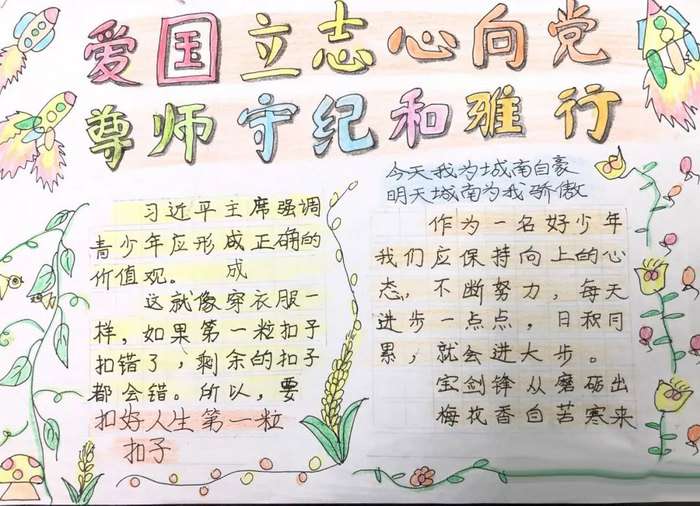 爱国立志心向党
尊师守纪和雅行
习近平主席强调
青少年应形成正确的
价值观。
成
这就像穿衣服一
样，如果第一粒扣子
扣错了，剩余的扣子
都会错。所以，要
扣好人生第一粒
扣子
今天我为城南自豪
明天城南为我骄傲
作为一名好少年
我们应保持向上的心
态，不断努力，每天
进步一点点，日积月
累，就会进大步。
宝剑锋从磨砺出
梅花香自苦寒来